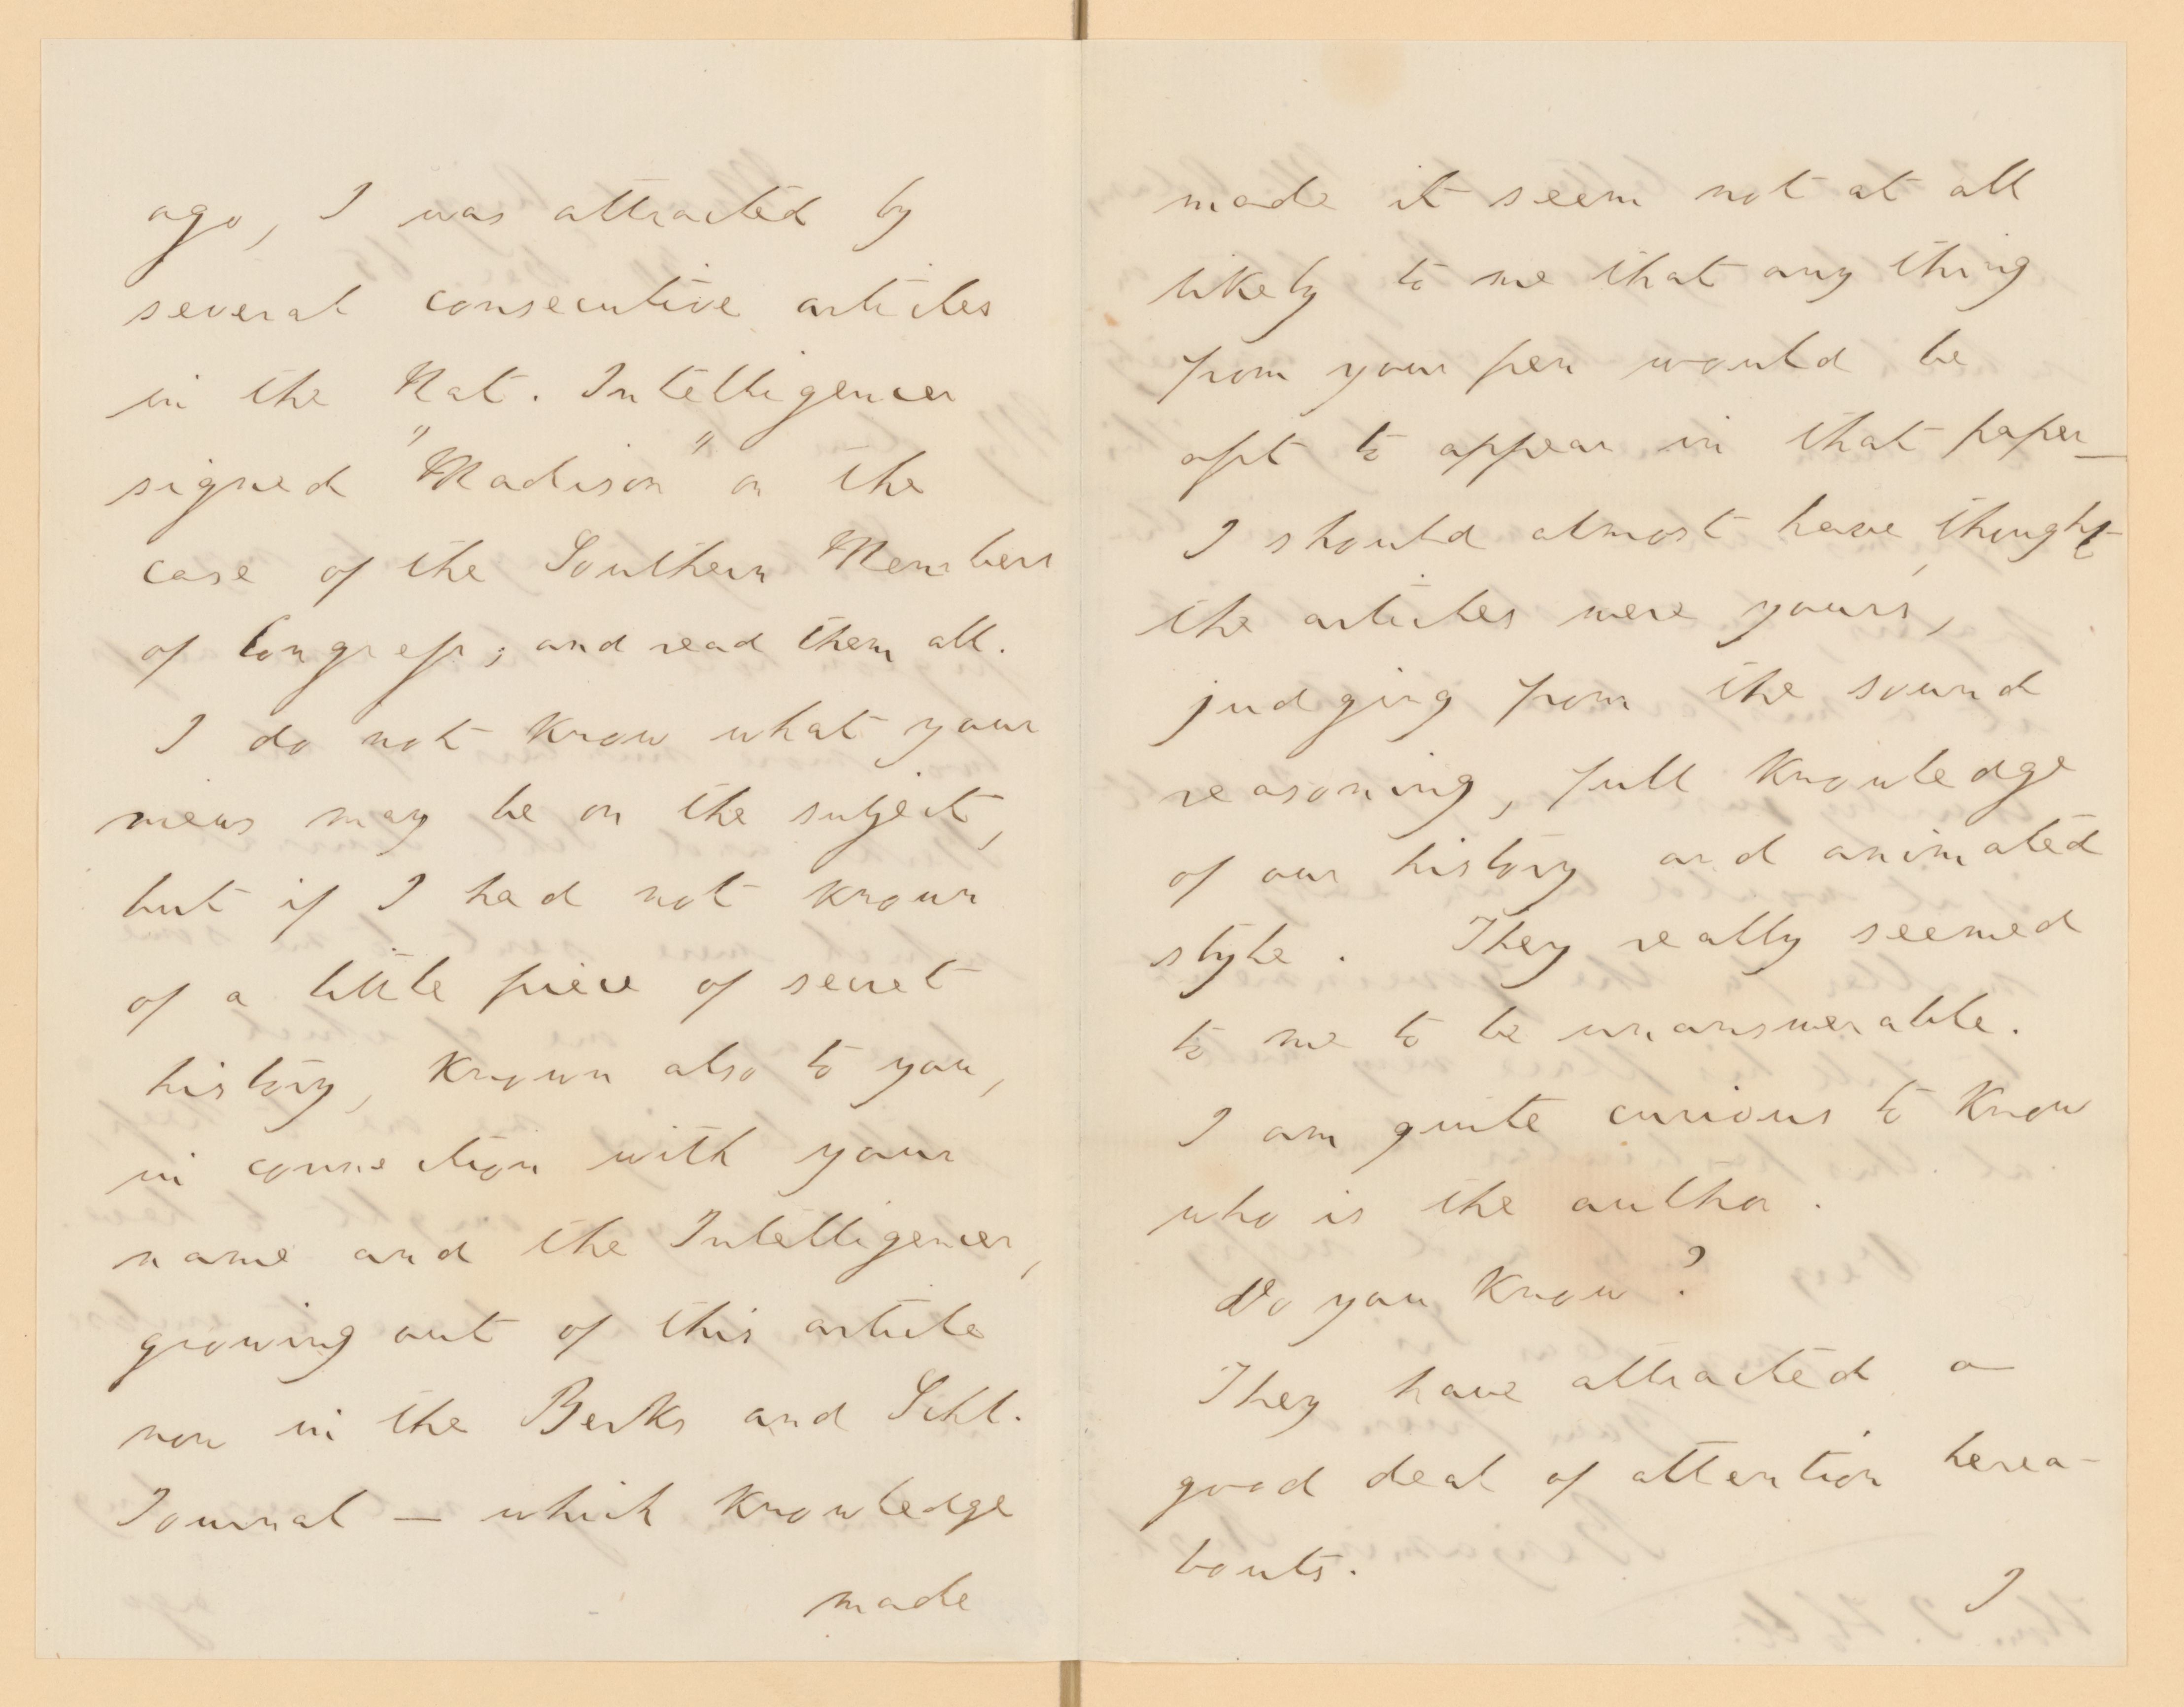 ago, I was attracted by
several consecutive articles
in the Nat. Intelligencer
signed "Madison" on the
case of the Southern Members
of Congress; and read them all.
I do not know what your
views may be on the subject,
but if I had not known
of a little piece of secret
history, known also to you,
in connection with your
name and the Intelligencer,
growing out of this article
now in the Berks and Schl.
Journal — which knowledge
made
made it seem not at all
likely to me that any thing
from your pen would be
apt to appear in that paper—
I should almost have thought
the articles were yours,
judging from the sound
reasoning, full knowledge
of our history and animated
style. They really seemed
to me to be unanswerable.
I am quite curious to know
who is the author.
Do you know?
They have attracted a
good deal of attention herea-
bouts.
I